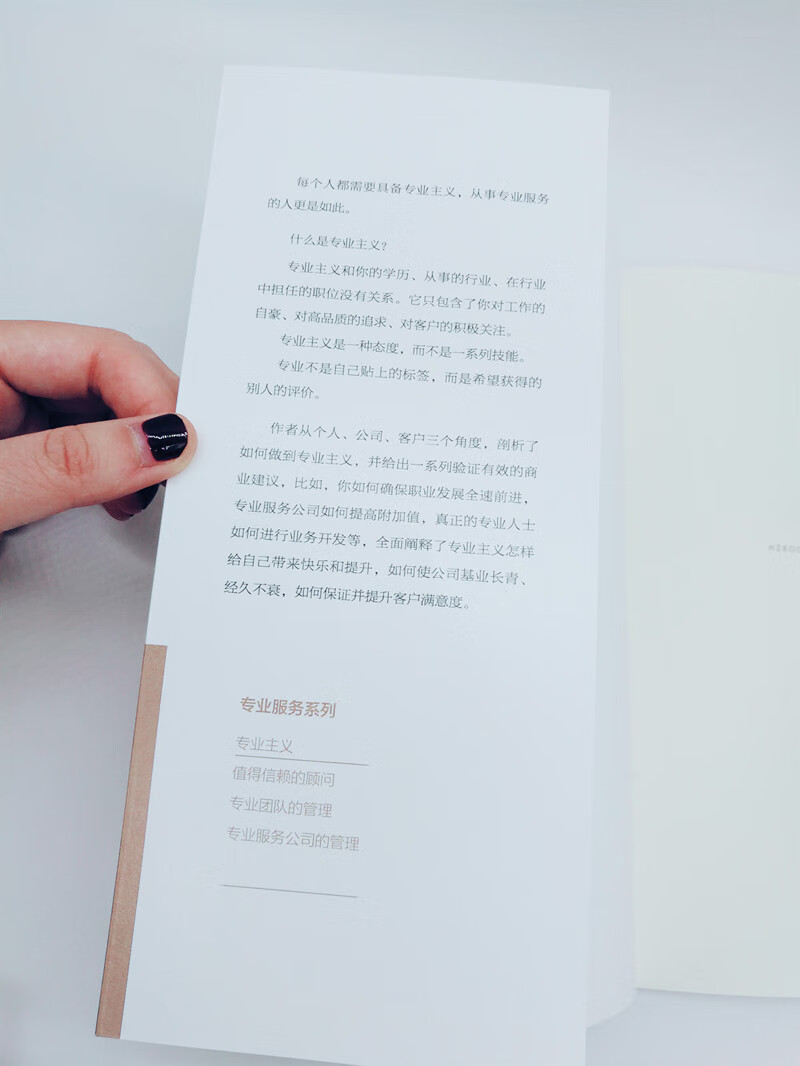 每个人都需要具备专业主义，从事专业服务
的人更是如此。
什么是专业主义？
专业主义和你的学历、从事的行业、在行业
中担任的职位没有关系。它只包含了你对工作的
自豪、对高品质的追求、对客户的积极关注。
专业主义是一种态度，而不是一系列技能。
专业不是自己贴上的标签，而是希望获得的
别人的评价。
作者从个人、公司、客户三个角度，剖析了
如何做到专业主义，并给出一系列验证有效的商
业建议，比如，你如何确保职业发展全速前进，
专业服务公司如何提高附加值，真正的专业人士
如何进行业务开发等，全面阐释了专业主义怎样
给自己带来快乐和提升，如何使公司基业长青、
经久不衰，如何保证并提升客户满意度。
专业服务系列
专业主义
值得信赖的顾问
专业团队的管理
专业服务公司的管理